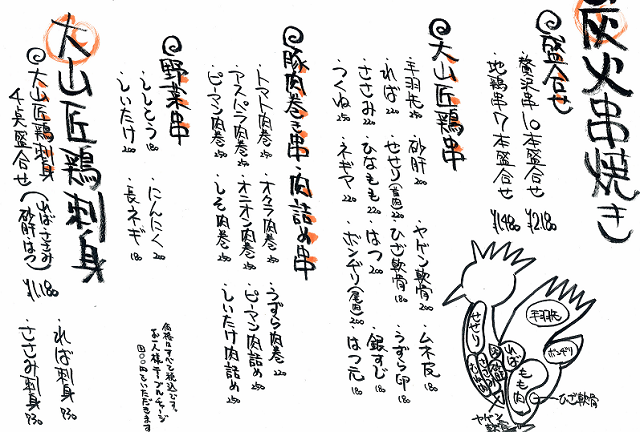 炭火串焼き
盛合せ
・贅沢串10本盛合せ ¥2180
・地鶏串7本盛合せ ¥1480
大山匠鶏串
・手羽先 250
・砂肝 200
・ヤゲン軟骨 200
・ムネ皮 180
・ればー
・せせり(首肉)
・ひざ軟骨 180
・うずら卵 180
・ささみ 220
・ひなもも 220
・はつ 200
・銀すじ 180
・つくね 250
・ネギマ 220
・ボンヂリ(尾肉) 200
・はつ元 200
豚肉巻き串・肉詰め串
・トマト肉巻 250
・オクラ肉巻 250
・うずら肉巻 250
・アスパラ肉巻 250
・オニオン肉巻 250
・ピーマン肉詰め 250
・ピーマン肉巻 250
・しそ肉巻 250
・しいたけ肉詰め 250
野菜串
・ししとう 180
・にんにく 200
・しいたけ 200
・長ネギ 180
価格はすべて税込です。
お一人様テーブルチャージ
400円いただきます
大山匠鶏刺身
大山匠鶏刺身
4点盛合せ(ればー・ささみ・砂肝・はつ) ¥1,180
・ればー刺身 730
・ささみ刺身 730
せせり
手羽先
ボンヂリ
ればー
もも肉
ひざ軟骨
ヤゲン軟骨